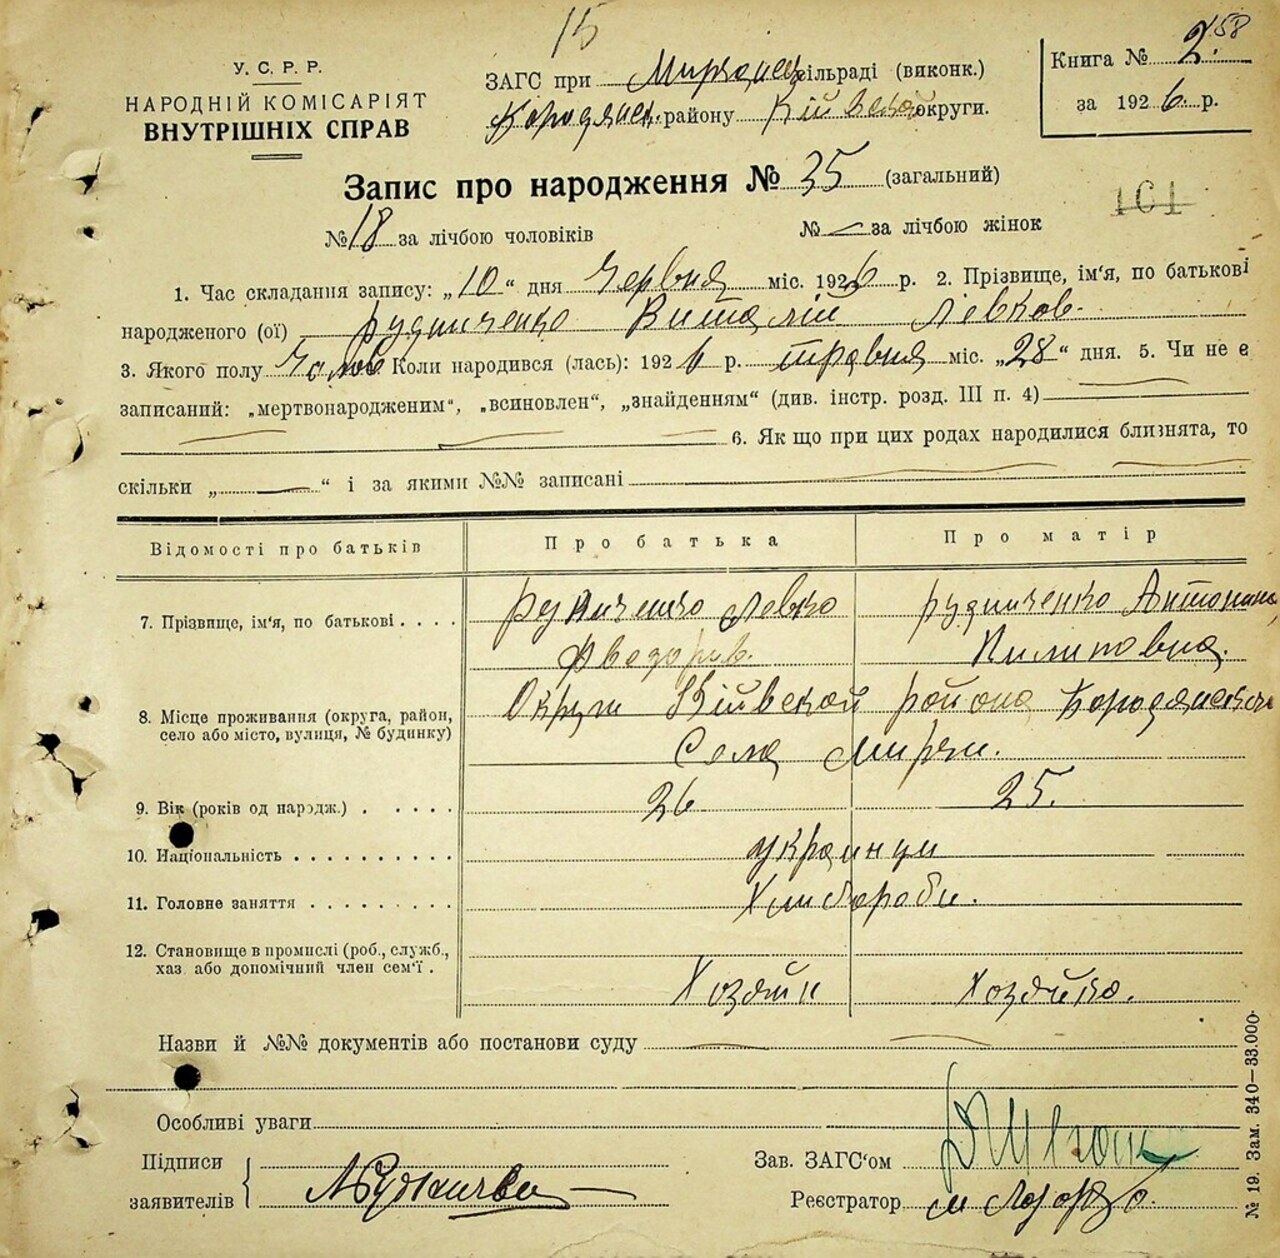 15
158
У. С. Р. Р.
НАРОДНІЙ КОМІСАРІЯТ
ВНУТРІШНІХ СПРАВ
ЗАГС при Мирчанск сільраді (виконк.)
Кородянск. району Київской округи.
Книга № 2.
за 1926 р.
Запис про народження № 35 (загальний)
101
№ 18 за лічбою чоловіків № — за лічбою жінок
1. Час складання запису: „10“ дня Червня міс. 1926 р. 2. Прізвище, ім'я, по батькові
народженого (ої) Рудниченко Виталій Левков.
3. Якого полу Чолов Коли народився (лась): 1926 р. травня міс. „28“ дня. 5. Чи не є
записаний: „мертвонародженим“, „всиновлен“, „знайденням“ (див. інстр. розд. III п. 4) —
— 6. Як що при цих родах народилися близнята, то
скільки „—“ і за якими №№ записані —
Відомості про батьків Про батька Про матір
7. Прізвище, ім'я, по батькові . . . . Рудниченко Левко Рудниченко Антонина
Федорив. Пилиповна.
8. Місце проживання (округа, район, Округи Київской района Кородянского
село або місто, вулиця, № будинку) Села Мирчи.
9. Вік (років од народж.) . . . . . 26 25.
10. Національність . . . . . . . . . . украинци
11. Головне заняття . . . . . . . . . Хлибороби.
12. Становище в промислі (роб., служб.,
хаз. або допомічний член сем'ї . Хозяин Хозяйка.
Назви й №№ документів або постанови суду —
Особливі уваги
Підписи
заявителів
Зав. ЗАГС'ом
Реєстратор
№ 19. Зам. 340—33.000